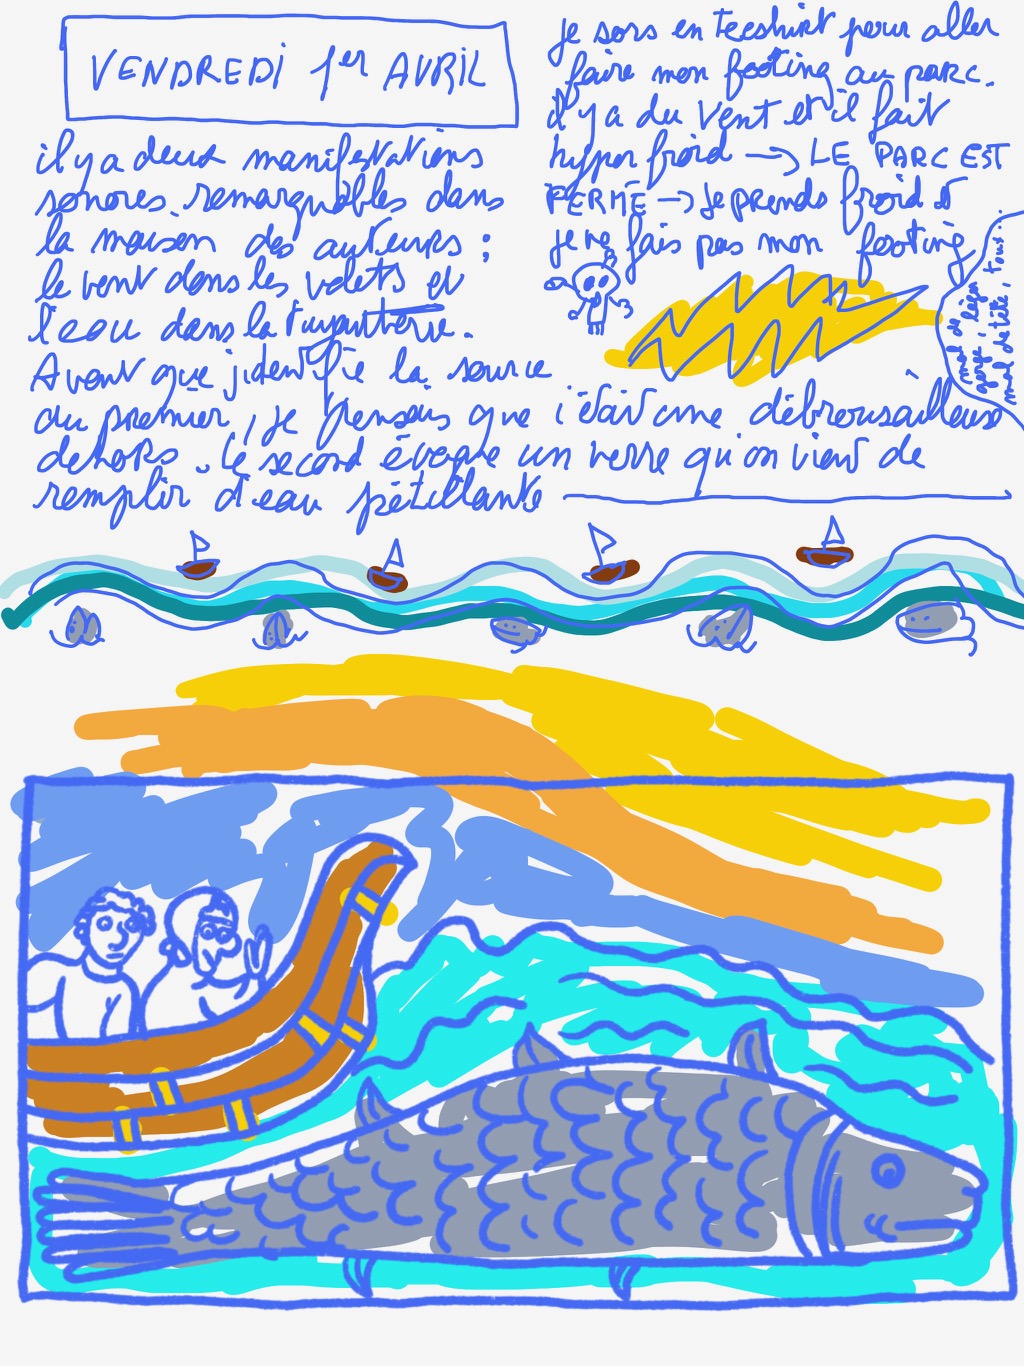 VENDREDi 1er AVRiL
il y a deux manifestations
sonores remarquables dans
la maison des auteurs :
le vent dans les volets et
l'eau dans la tuyauterie.
Avant que j'identifie la source
du premier, je pensais que c'était une débrousailleuse
dehors. Le second évoque un verre qu'on vient de
remplir d'eau pétillante
je sors en teeshirt pour aller
faire mon footing au parc.
il y a du vent et il fait
hyper froid → LE PARC EST
FERMÉ → Je prends froid et
je ne fais pas mon footing
mal de
gorge, léger
mal de tête, toux.